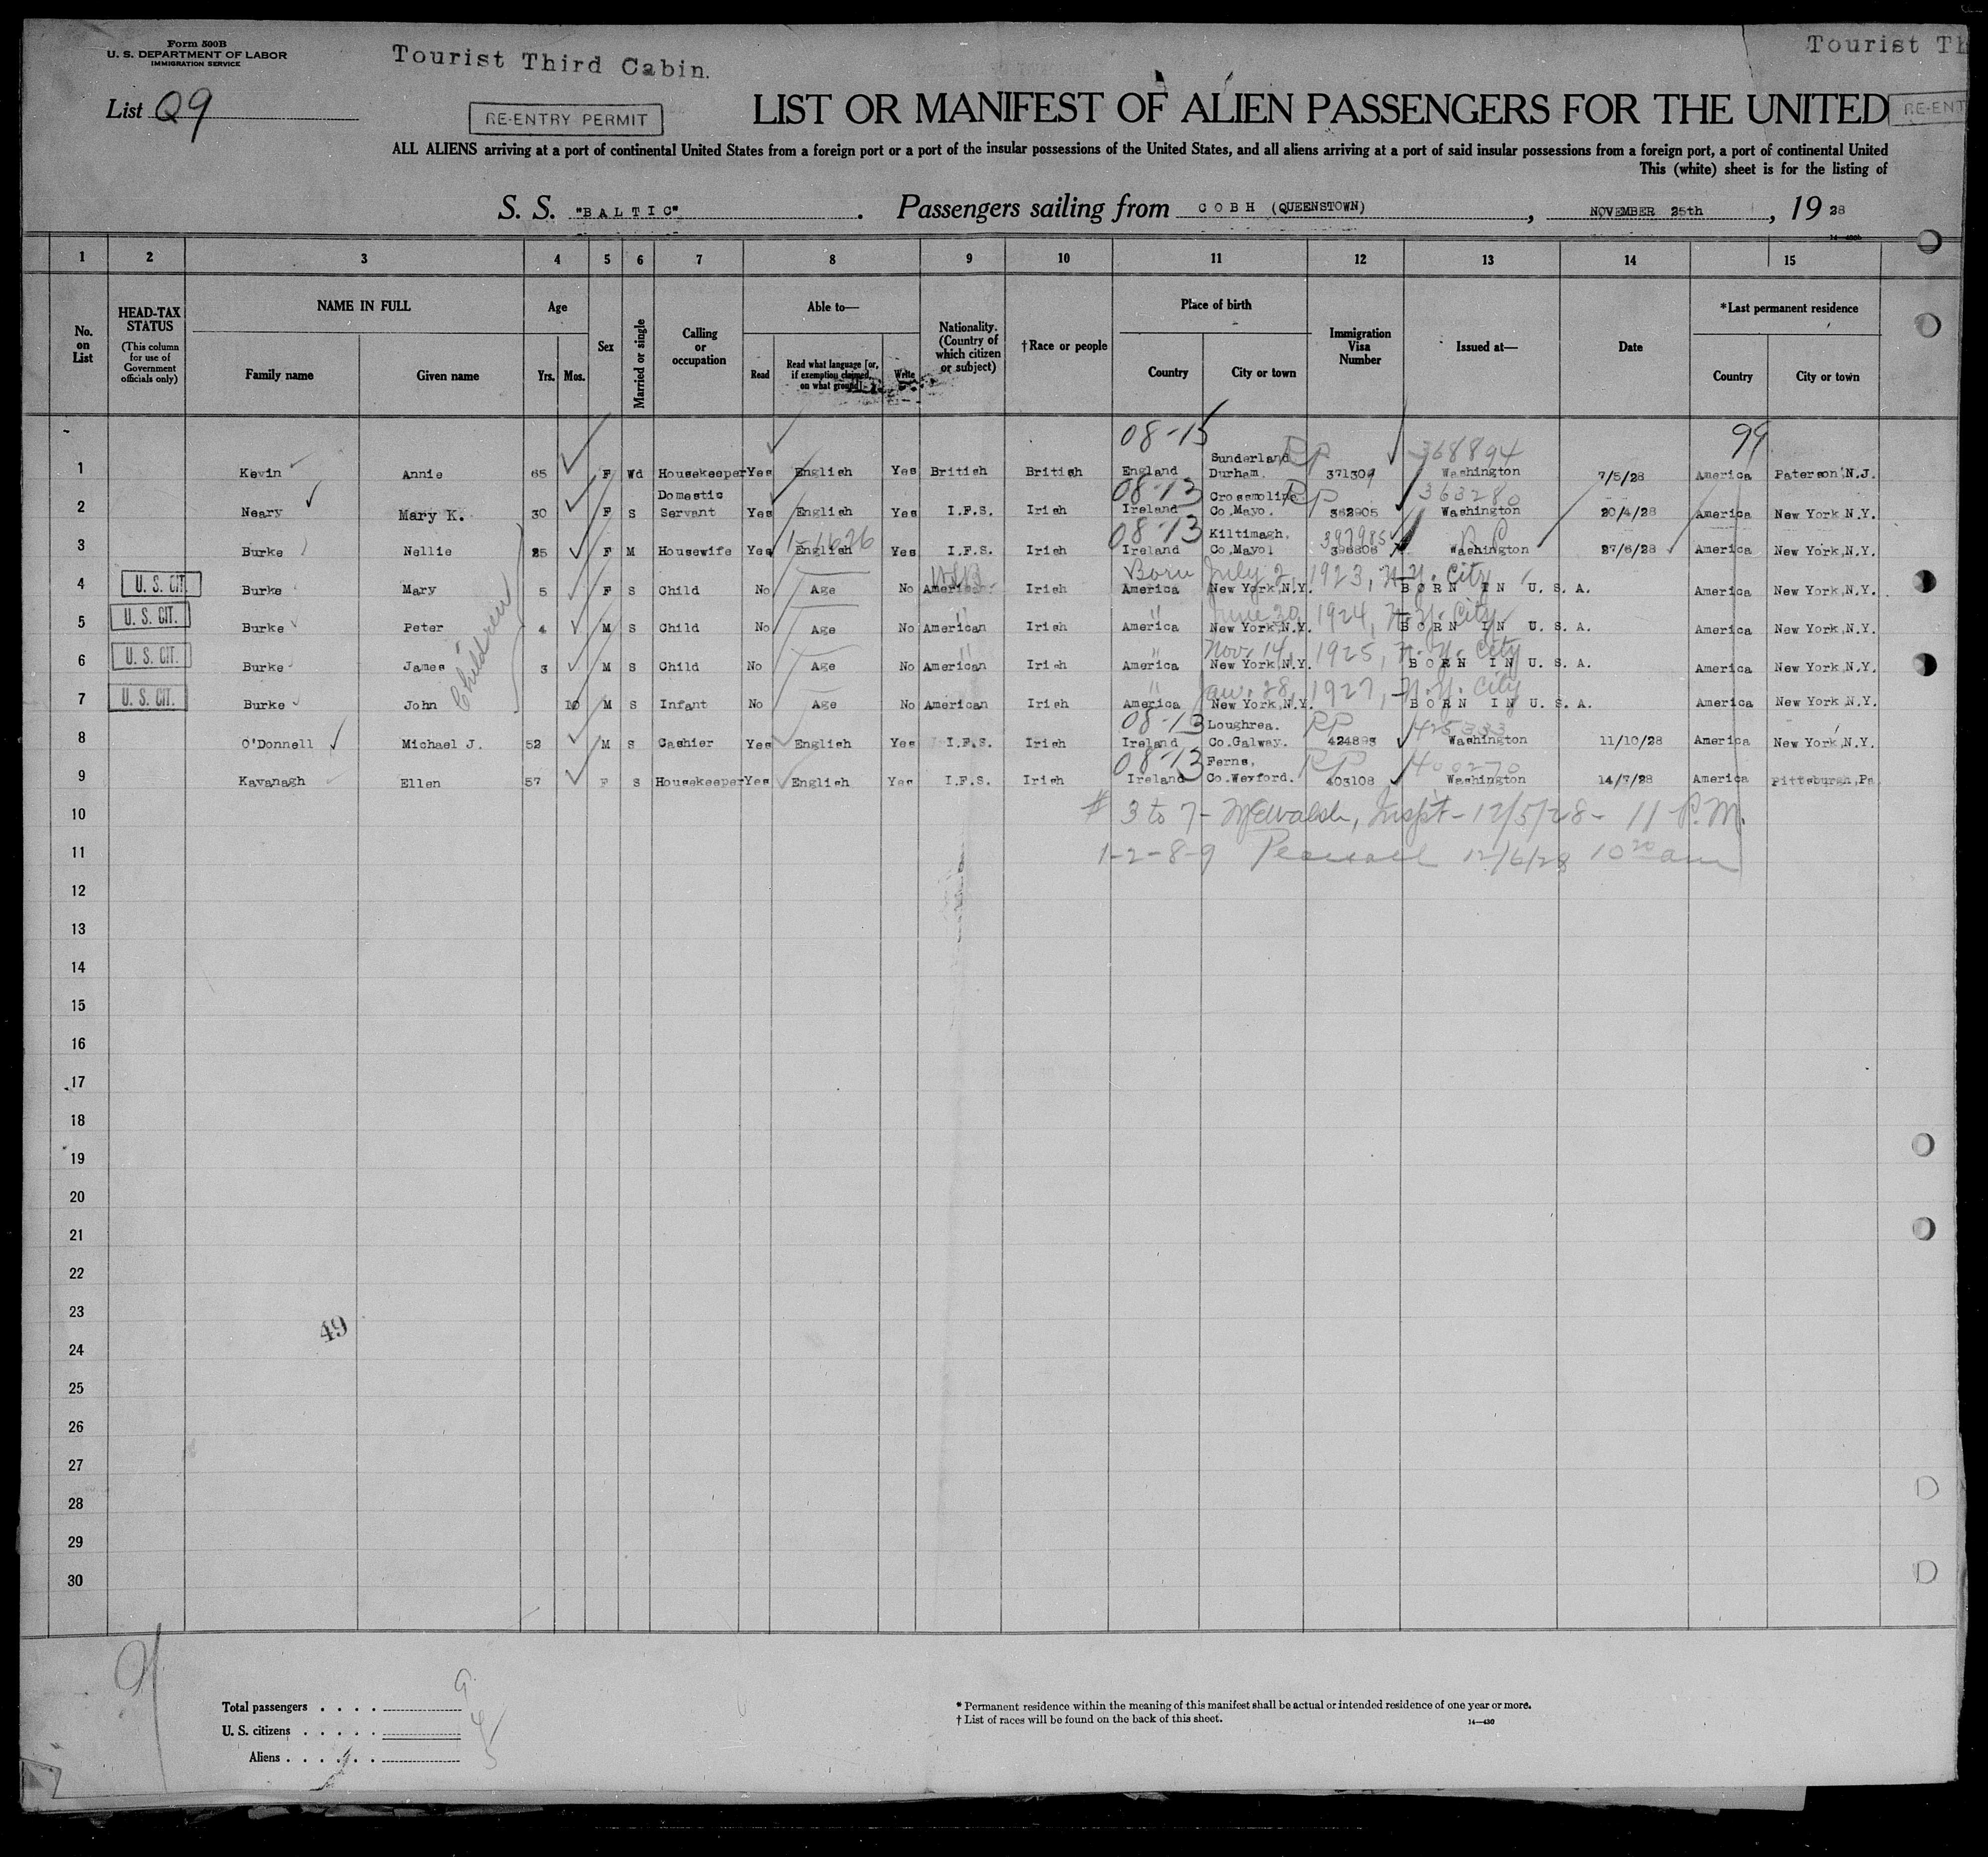 Form 500B
U. S. DEPARTMENT OF LABOR
IMMIGRATION SERVICE
Tourist Third Cabin.
Tourist Th
List Q9
RE-ENTRY PERMIT
LIST OR MANIFEST OF ALIEN PASSENGERS FOR THE UNITED
RE-ENT
ALL ALIENS arriving at a port of continental United States from a foreign port or a port of the insular possessions of the United States, and all aliens arriving at a port of said insular possessions from a foreign port, a port of continental United
This (white) sheet is for the listing of
S. S. "BALTIC" . Passengers sailing from COBH (QUEENSTOWN) , NOVEMBER 25th , 1928
1 2 3 4 5 6 7 8 9 10 11 12 13 14 15
No. on List
HEAD-TAX STATUS
(This column for use of Government officials only)
NAME IN FULL
Family name
Given name
Age
Yrs. Mos.
Sex
Married or single
Calling or occupation
Able to—
Read
Read what language [or, if exemption claimed, on what ground]
Write
Nationality. (Country of which citizen or subject)
†Race or people
Place of birth
Country
City or town
Immigration Visa Number
Issued at—
Date
*Last permanent residence
Country
City or town
08-15 99
Sunderland RP 368894
1 Kevin Annie 65 F Wd Housekeeper Yes English Yes British British England Durham. 371309 Washington 7/5/28 America Paterson N.J.
Domestic 08-13 Crossmolina RP 363280
2 Neary Mary K. 30 F S Servant Yes English Yes I.F.S. Irish Ireland Co.Mayo. 362905 Washington 20/4/28 America New York N.Y.
1-1626 08-13 Kiltimagh. 397985
3 Burke Nellie 25 F M Housewife Yes English Yes I.F.S. Irish Ireland Co.Mayo. 396806 Washington 27/6/28 America New York,N.Y.
Born July 2, 1923, N.Y. City
4 U. S. CIT. Burke Mary 5 F S Child No Age No American Irish America New York,N.Y. BORN IN U.S.A. America New York,N.Y.
" June 30, 1924, N.Y. City
5 U. S. CIT. Burke Peter 4 M S Child No Age No American Irish America New York,N.Y. BORN IN U.S.A. America New York,N.Y.
" Nov. 14, 1925, N.Y. City
6 U. S. CIT. Burke James 3 M S Child No Age No American Irish America New York,N.Y. BORN IN U.S.A. America New York,N.Y.
" Jan. 28, 1927, N.Y. City
7 U. S. CIT. Burke John 10 M S Infant No Age No American Irish America New York,N.Y. BORN IN U.S.A. America New York N.Y.
Children
08-13 Loughrea. RP 425333
8 O'Donnell Michael J. 52 M S Cashier Yes English Yes I.F.S. Irish Ireland Co.Galway. 424893 Washington 11/10/28 America New York,N.Y.
08-13 Ferns, RP 400270
9 Kavanagh Ellen 57 F S Housekeeper Yes English Yes I.F.S. Irish Ireland Co.Wexford. 403108 Washington 14/7/28 America Pittsburgh,Pa
10 # 3 to 7 - Inspt - 12/5/28 - 11 P.M.
11 1-2-8-9 12/6/28 10 20 am
12
13
14
15
16
17
18
19
20
21
22
23
49
24
25
26
27
28
29
30
9
Total passengers . . . . 9
U. S. citizens . . . . . 4
Aliens . . . . . . 5
* Permanent residence within the meaning of this manifest shall be actual or intended residence of one year or more.
† List of races will be found on the back of this sheet.
14—430